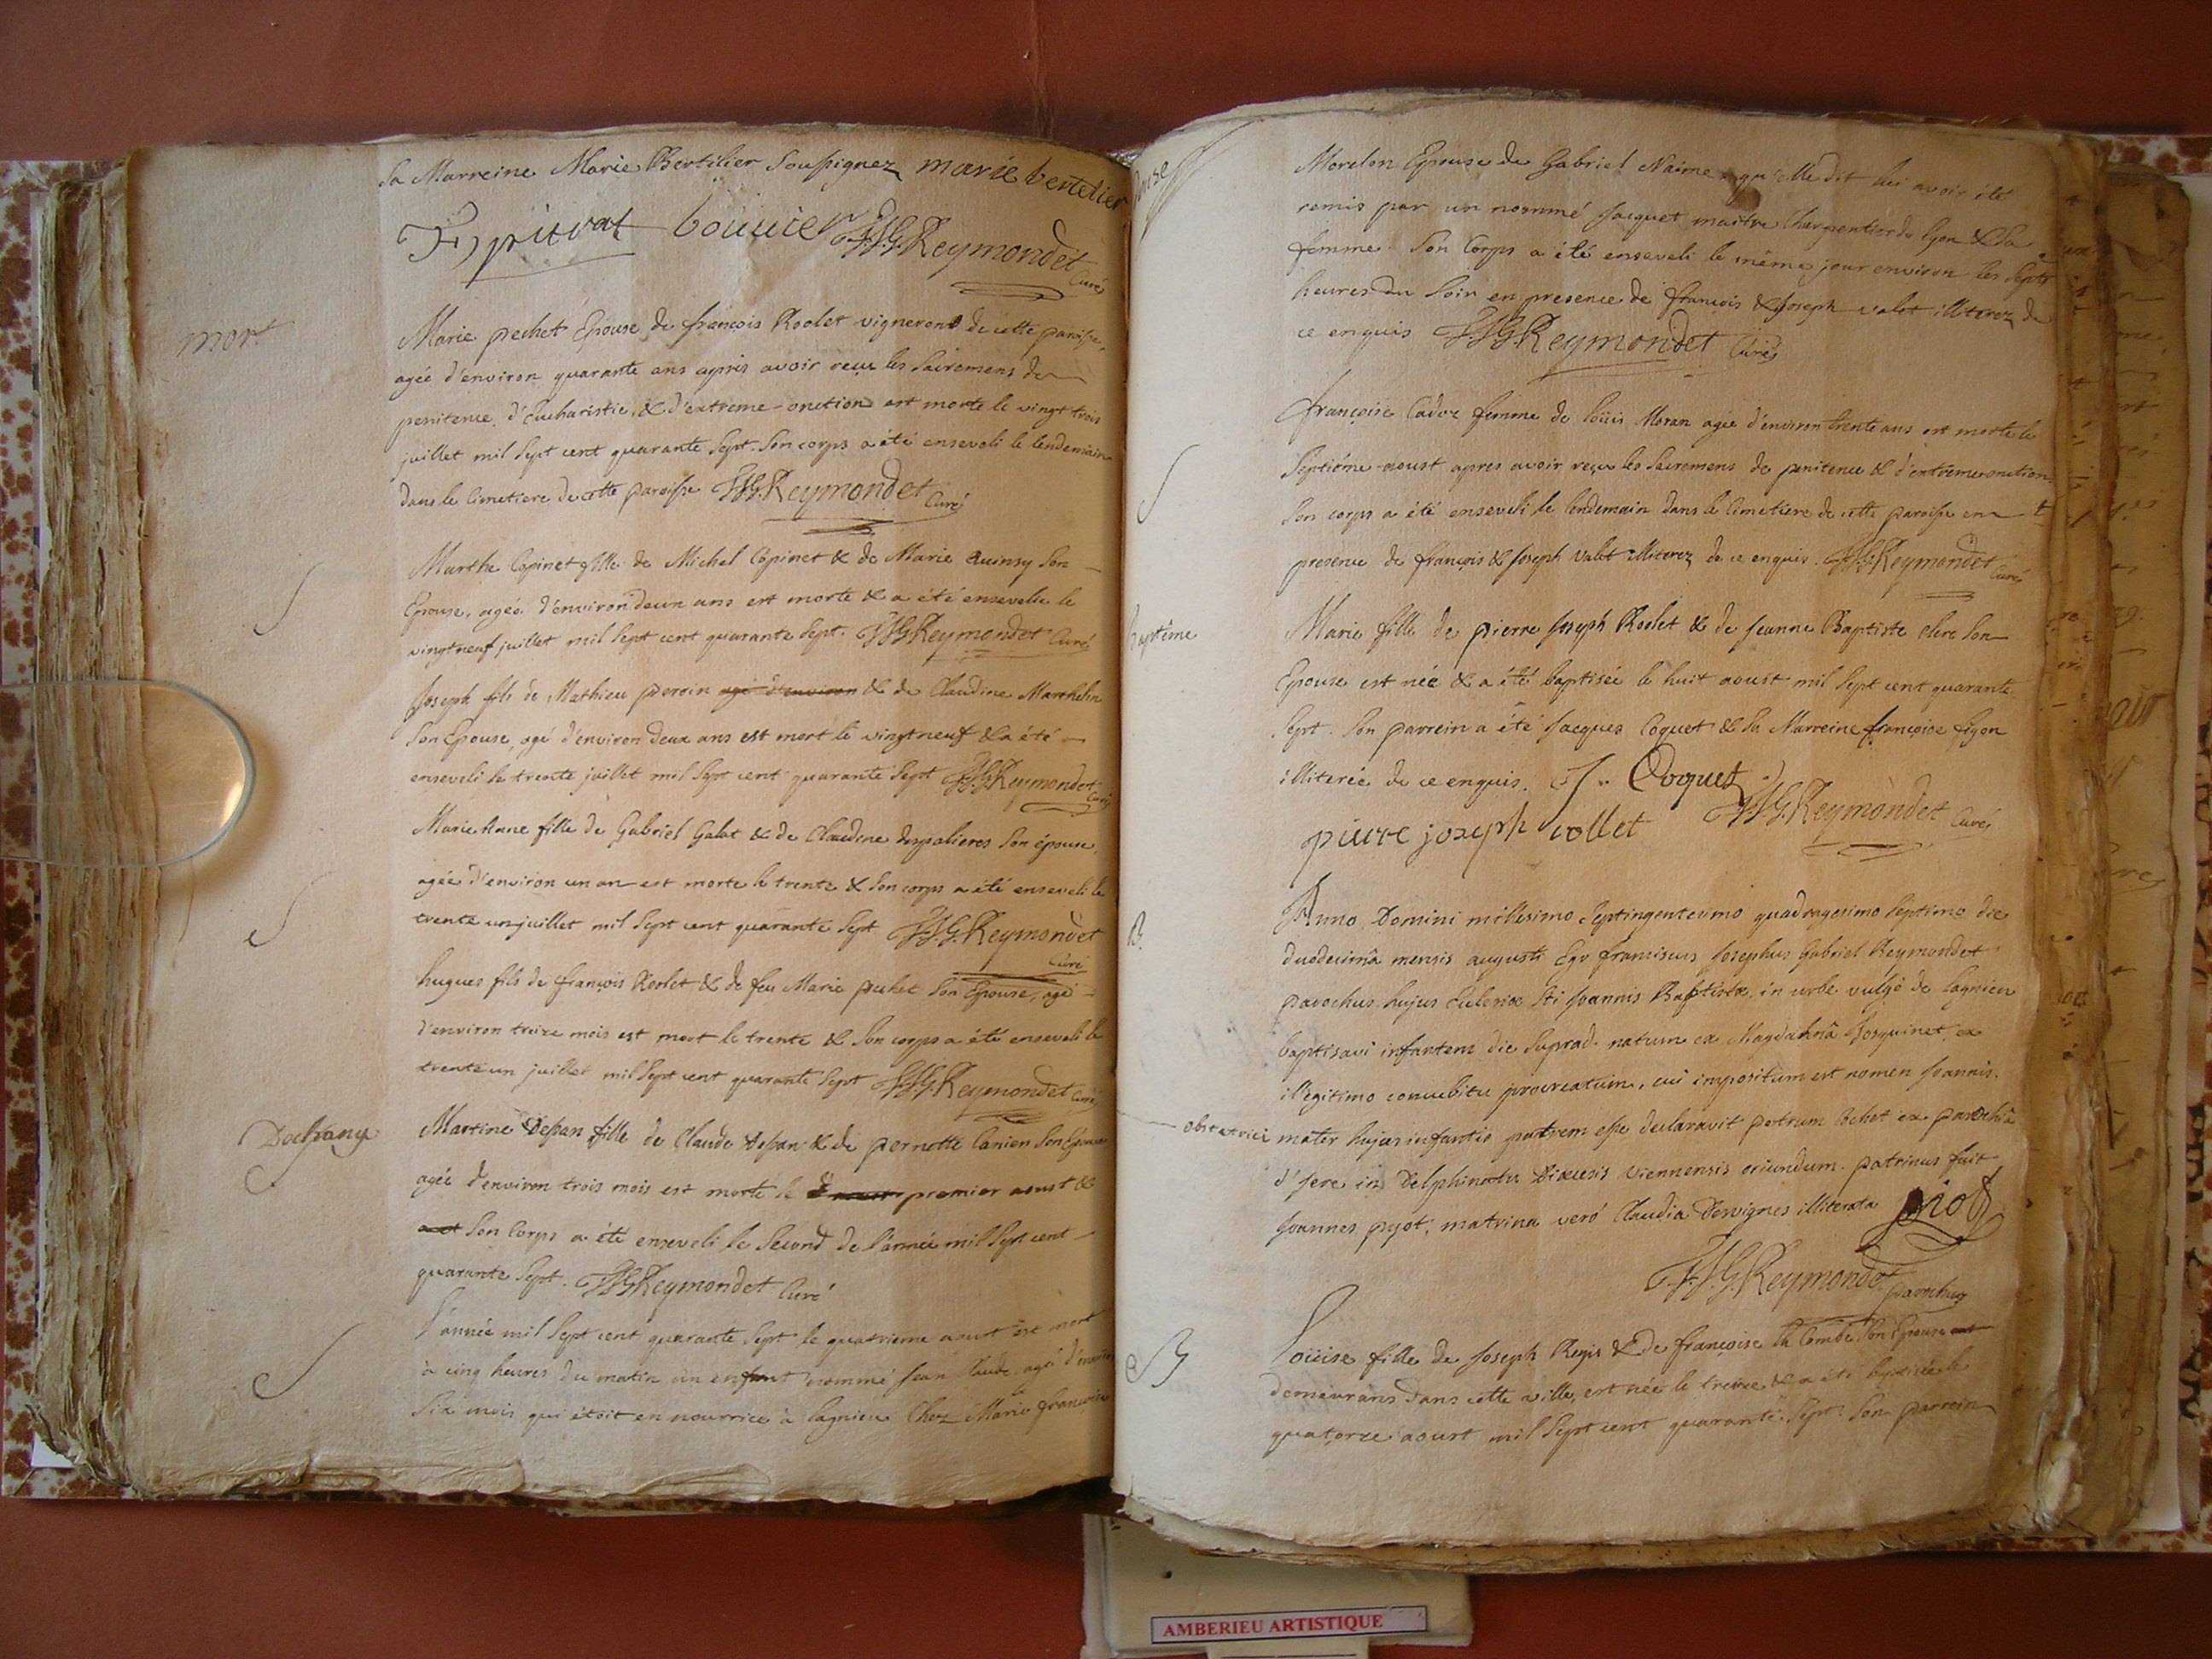 sa Marreine Marie Bertilier soussignez marie bertelier
F, pittrat bouuier F.J.G. Reymondet
Curé
mort
Marie pechet Epouse de françois Roolet vigneron de cette paroisse,
agée d'environ quarante ans apres avoir reçu les sacremens de
penitence, d'Eucharistie, & d'extreme-onction est morte le vingt trois
juillet mil sept cent quarante sept. Son corps a été enseveli le lendemain
dans le Cimetiere de cette paroisse F.J.G. Reymondet Curé
S
Marthe Copinet fille de Michel Copinet & de Marie Quinsy son
Epouse, agée d'environ deux ans est morte & a été ensevelie le
vingt neuf juillet mil sept cent quarante sept. F.J.G. Reymondet Curé
Joseph fils de Mathieu peroin agé d'environ & de Claudine Marthelin
son Epouse, agé d'environ deux ans est mort le vingtneuf & a été
enseveli le trente juillet mil sept cent quarante sept F.J.G. Reymondet
Curé
Marie Anne fille de Gabriel Galot & de Claudine despalieres son épouse,
agée d'environ un an est morte le trente & son corps a été enseveli le
trente un juillet mil sept cent quarante sept F.J.G. Reymondet
Curé
hugues fils de françois Roolet & de feu Marie pechet son Epouse, agé
d'environ treize mois est mort le trente & son corps a été enseveli le
trente un juillet mil sept cent quarante sept F.J.G. Reymondet Curé
Martine Depan fille de Claude Depan & de pernette Canien son Epouse
agée d'environ trois mois est morte le premier aoust &
son Corps a été enseveli le second de l'année mil sept cent
quarante sept. F.J.G. Reymondet Curé
L'année mil sept cent quarante sept le quatrieme aoust est mort
à cinq heures du matin un enfant nommé Jean Claude agé d'environ
six mois qui étoit en nourrice à Lagnieu Chez Marie françoise
Morelon Epouse de Gabriel Naime qu'elle dit lui avoir été
remis par un nommé Jacquet maitre Charpentier de Lyon & sa
femme. Son Corps a été enseveli le même jour environ les sept
heures du soir en presence de françois & Joseph valet illiterez de
ce enquis F.J.G. Reymondet Curé
S
françoise Cadoz femme de loüis Moran agée d'environ trente ans est morte le
septiéme aoust apres avoir reçu les sacremens de penitence & d'extreme-onction
son corps a été enseveli le lendemain dans le Cimetiere de cette paroisse en
presence de françois & Joseph valet illiterez de ce enquis. F.J.G. Reymondet
Curé
baptême
Marie fille de pierre Joseph Roolet & de Jeanne Baptiste clerc son
Epouse est née & a été baptisée le huit aoust mil sept cent quarante
sept. Son parrein a été Jacques Coquet & sa Marreine françoise figon
illiterée de ce enquis. J. Coquet
pierre joseph rollet F.J.G. Reymondet Curé
B.
Anno Domini millesimo septingentesimo quadragesimo septimo die
duodecimâ mensis augusti Ego franciscus Josephus Gabriel Reymondet
parochus hujus Ecclesiæ Sti Joannis Baptistæ in urbe vulgò de Lagnieu
baptisavi infantem die suprad. natum ex Magdalenâ Josquinet, ex
illegitimo concubitu procreatum, cui impositum est nomen Joannis.
obstetrici mater hujus infantis patrem esse declaravit petrum Bochet ex parochiâ
d'fere in Delphinatu Diœcesis Viennensis oriundum. patrinus fuit
Joannes pyot, matrina veró Claudia Dervignes illiterata piot
F.J.G. Reymondet parochus
B
Loüise fille de Joseph Regis & de françoise la Combe son Epouse
demeurans dans cette ville, est née le treize & a été baptisée le
quatorze aoust mil sept cent quarante sept. Son parrein
AMBERIEU ARTISTIQUE